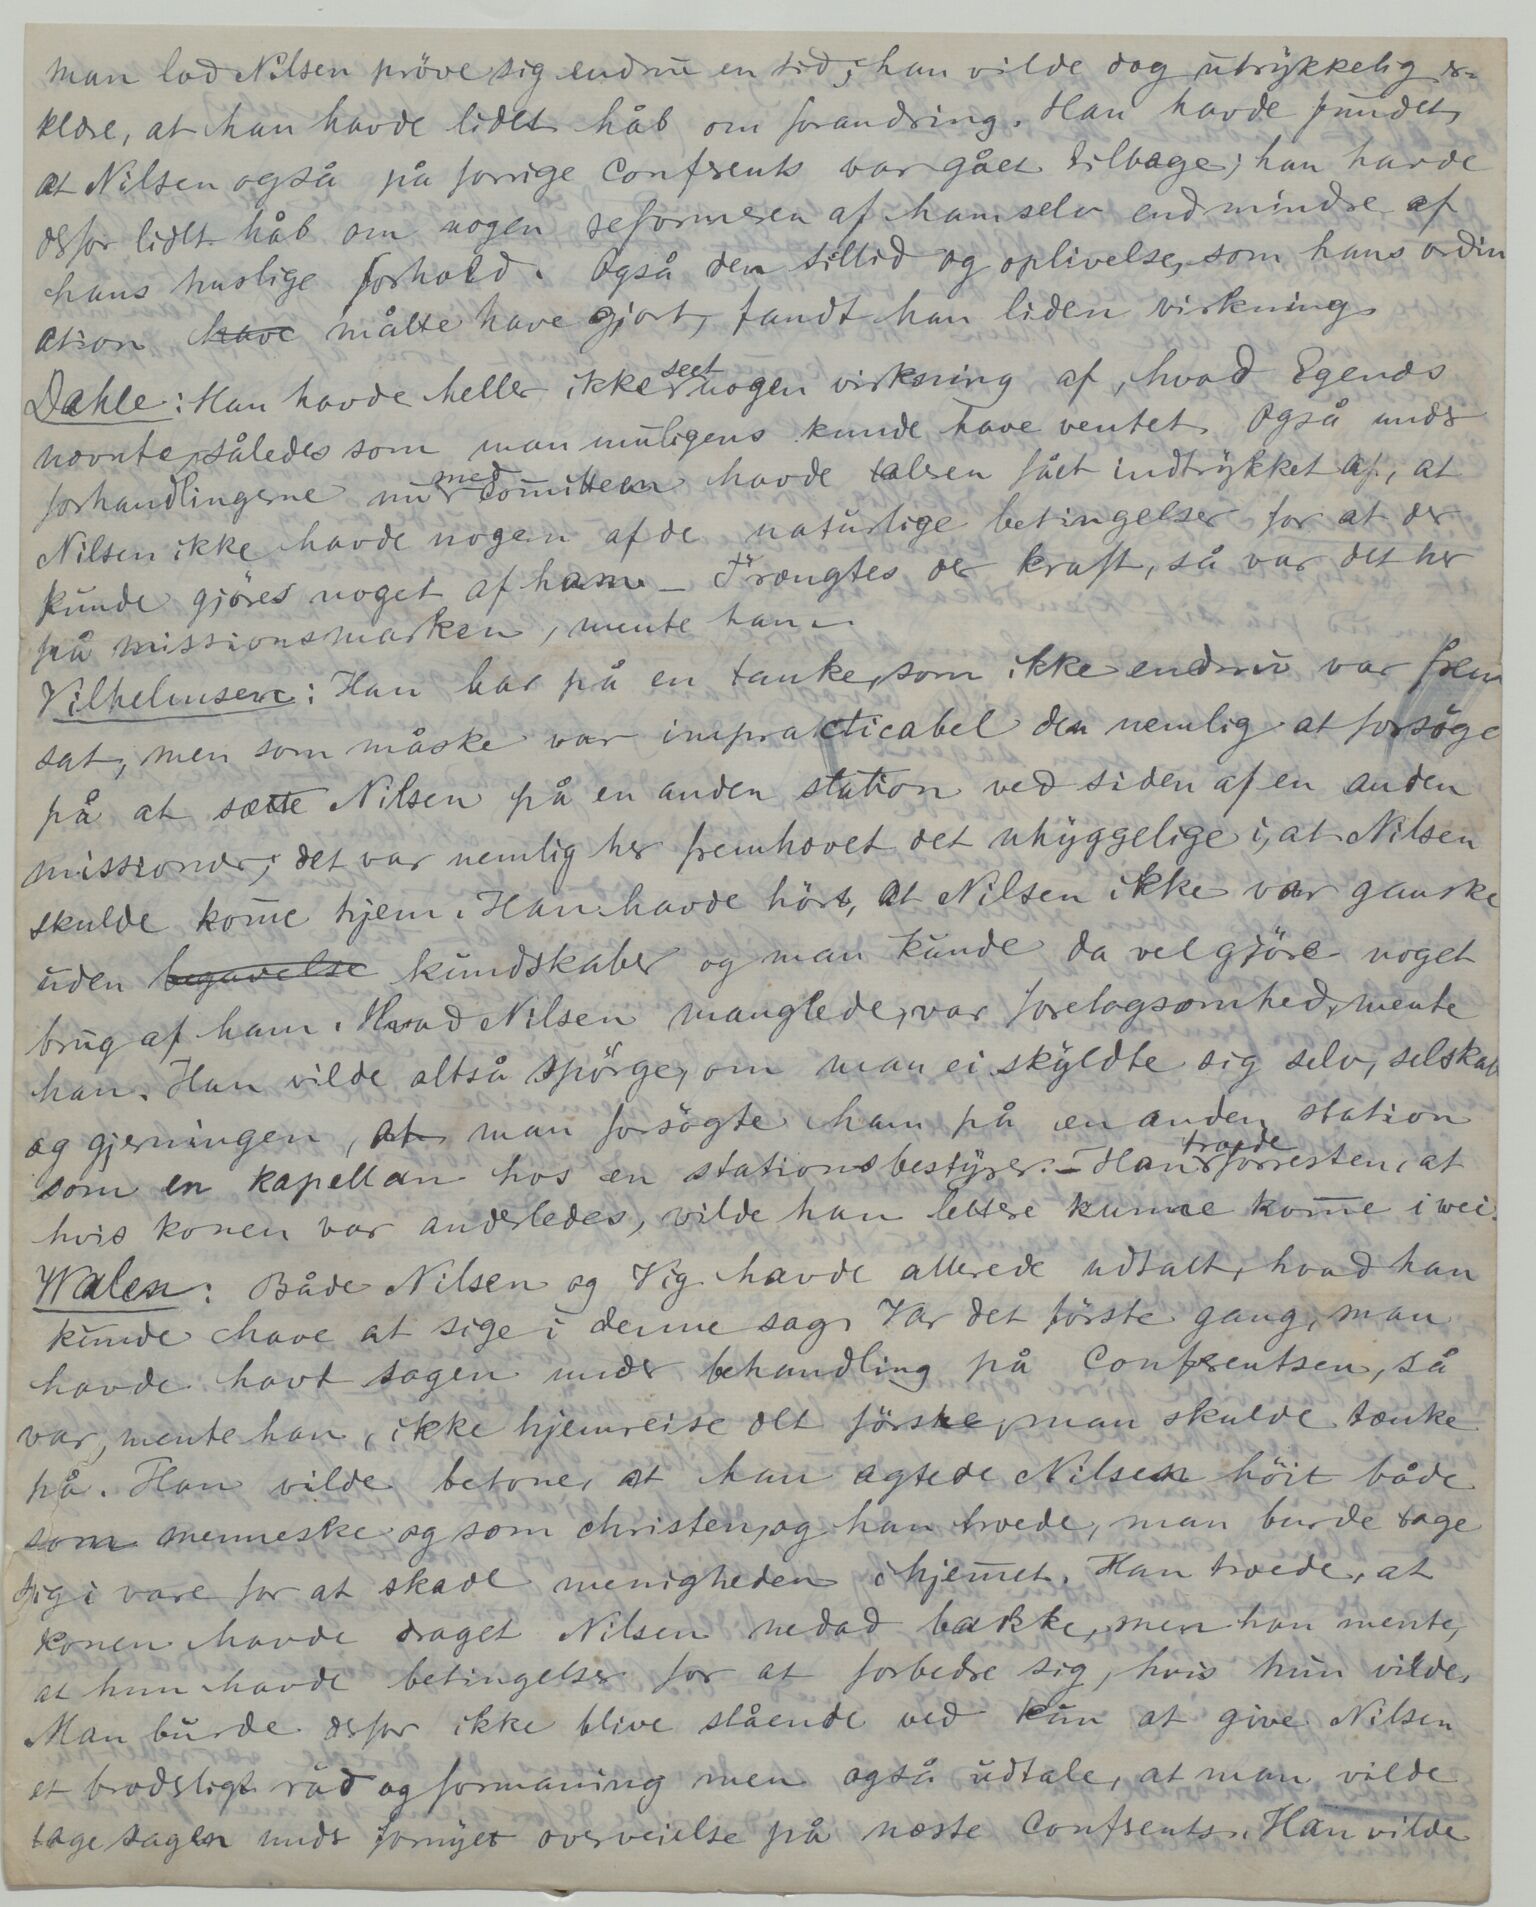 man lod Nilsen pröve sig endnu en tid; han vilde dog utrykkelig er-
klære, at han havde lidet håb om forandring. Han havde fundet,
at Nilsen også på forrige Conferents var gået tilbage; han havde
derfor lidet håb om nogen reformeren af ham selv endmindre af
hans huslige forhold. Også den tillid og oplivelse, som hans ordin
ation have måtte have gjort, fandt han liden virkning
Dahle: Han havde heller ikke seet nogen virkning af, hvad Egenæs
nævnte, således som man muligens kunde have ventet. Også under
forhandlingerne nu med Comitteen havde taleren fået indtrykket af, at
Nilsen ikke havde nogen af de naturlige betingelser for at der
kunde gjöres noget af ham. – Trængtes der kraft, så var det her
på missionsmarken, mente han.
Vilhelmsen: Han bar på en tanke, som ikke endnu var frem
sat, men som måske var impracticabel den nemlig at forsöge
på at sætte Nilsen på en anden station ved siden af en anden
missionær; det var nemlig her fremhævet det uhyggelige i, at Nilsen
skulde komme hjem. Han havde hört, at Nilsen ikke var ganske
uden begavelse kundskaber og man kunde da vel gjöre noget
brug af ham. Hvad Nilsen manglede, var foretagsomhed, mente
han. Han vilde altså spörge, om man ei skyldte sig selv, selskab
og gjerningen, at man forsögte ham på en anden station
som en kapellan hos en stationsbestyrer. – Han troede forresten, at
hvis konen var anderledes, vilde han lettere kunne komme i vei.
Walen: Både Nilsen og Vig havde allerede udtalt, hvad han
kunde have at sige i denne sag. Var det förste gang, man
havde havt sagen under behandling på Conferentsen, så
var, mente han, ikke hjemreise det förste, man skulde tænke
på. Han vilde betone, at han agtede Nilsen höit både
som menneske og som christen, og han troede, man burde tage
sig i vare for at skade menigheden i hjemmet. Han troede, at
konen havde draget Nilsen nedad bakke, men han mente,
at hun havde betingelser for at forbedre sig, hvis hun vilde.
Man burde derfor ikke blive stående ved kun at give Nilsen
et broderligt råd og formaning men også udtale, at man vilde
tage sagen under fornyet overveielse på næste Conferents. Han vilde